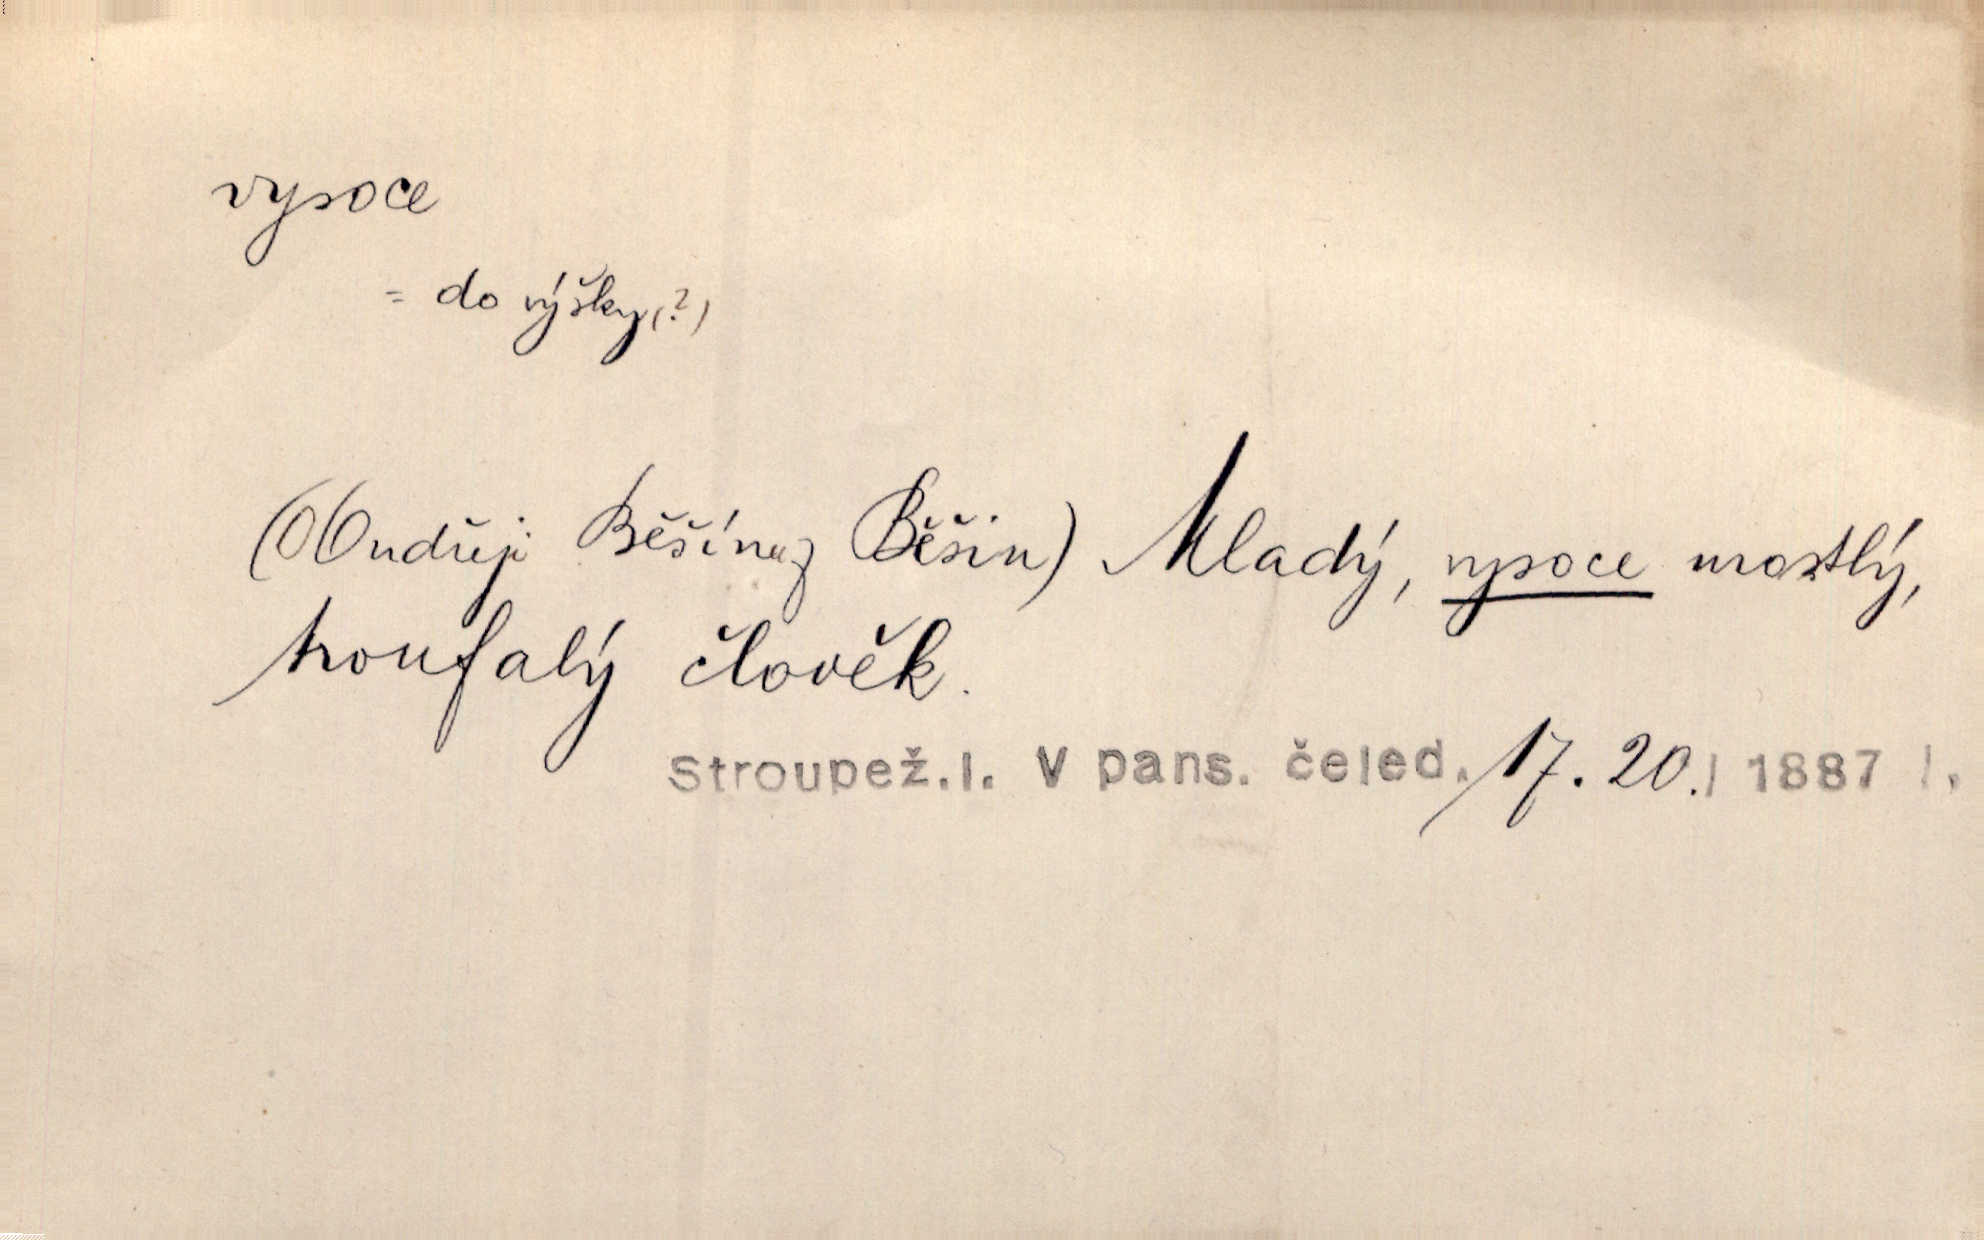 vysoce
= do výšky (?)
(Ondřeji Běšín z Běšin) Mladý, vysoce vrostlý,
troufalý člověk.
Stroupež. l. V pans. čeled. 17. 20. | 1887 |.